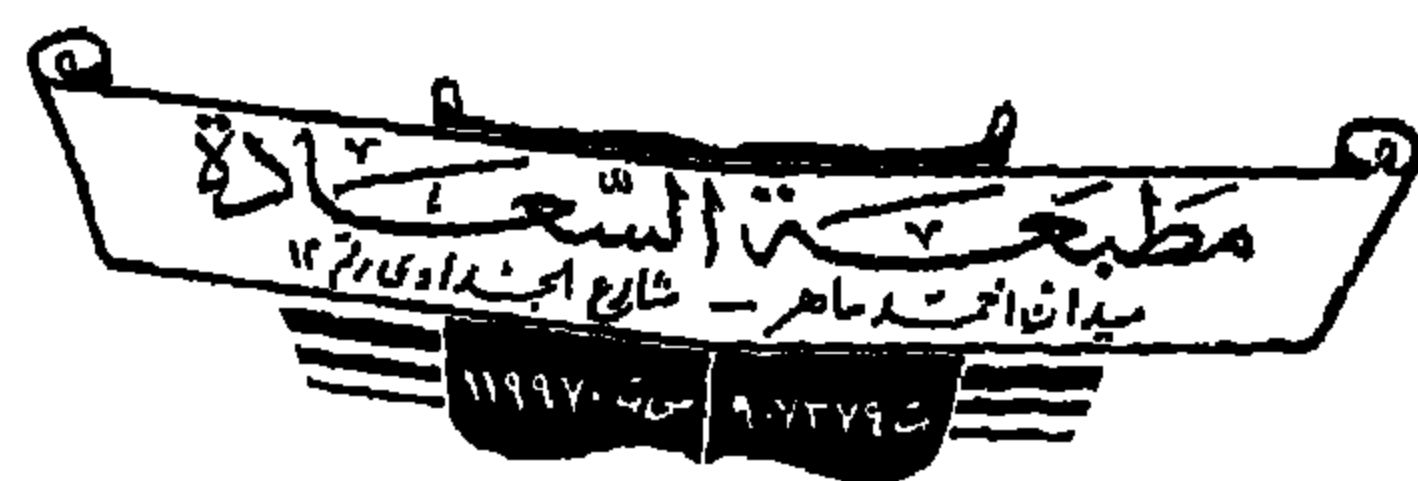 مطبعة السعادة
ميدان أحمد ماهر — شارع الجداوى رقم ١٢
ت ٩٠٧٣٧٩ س ت ١١٩٩٧٠